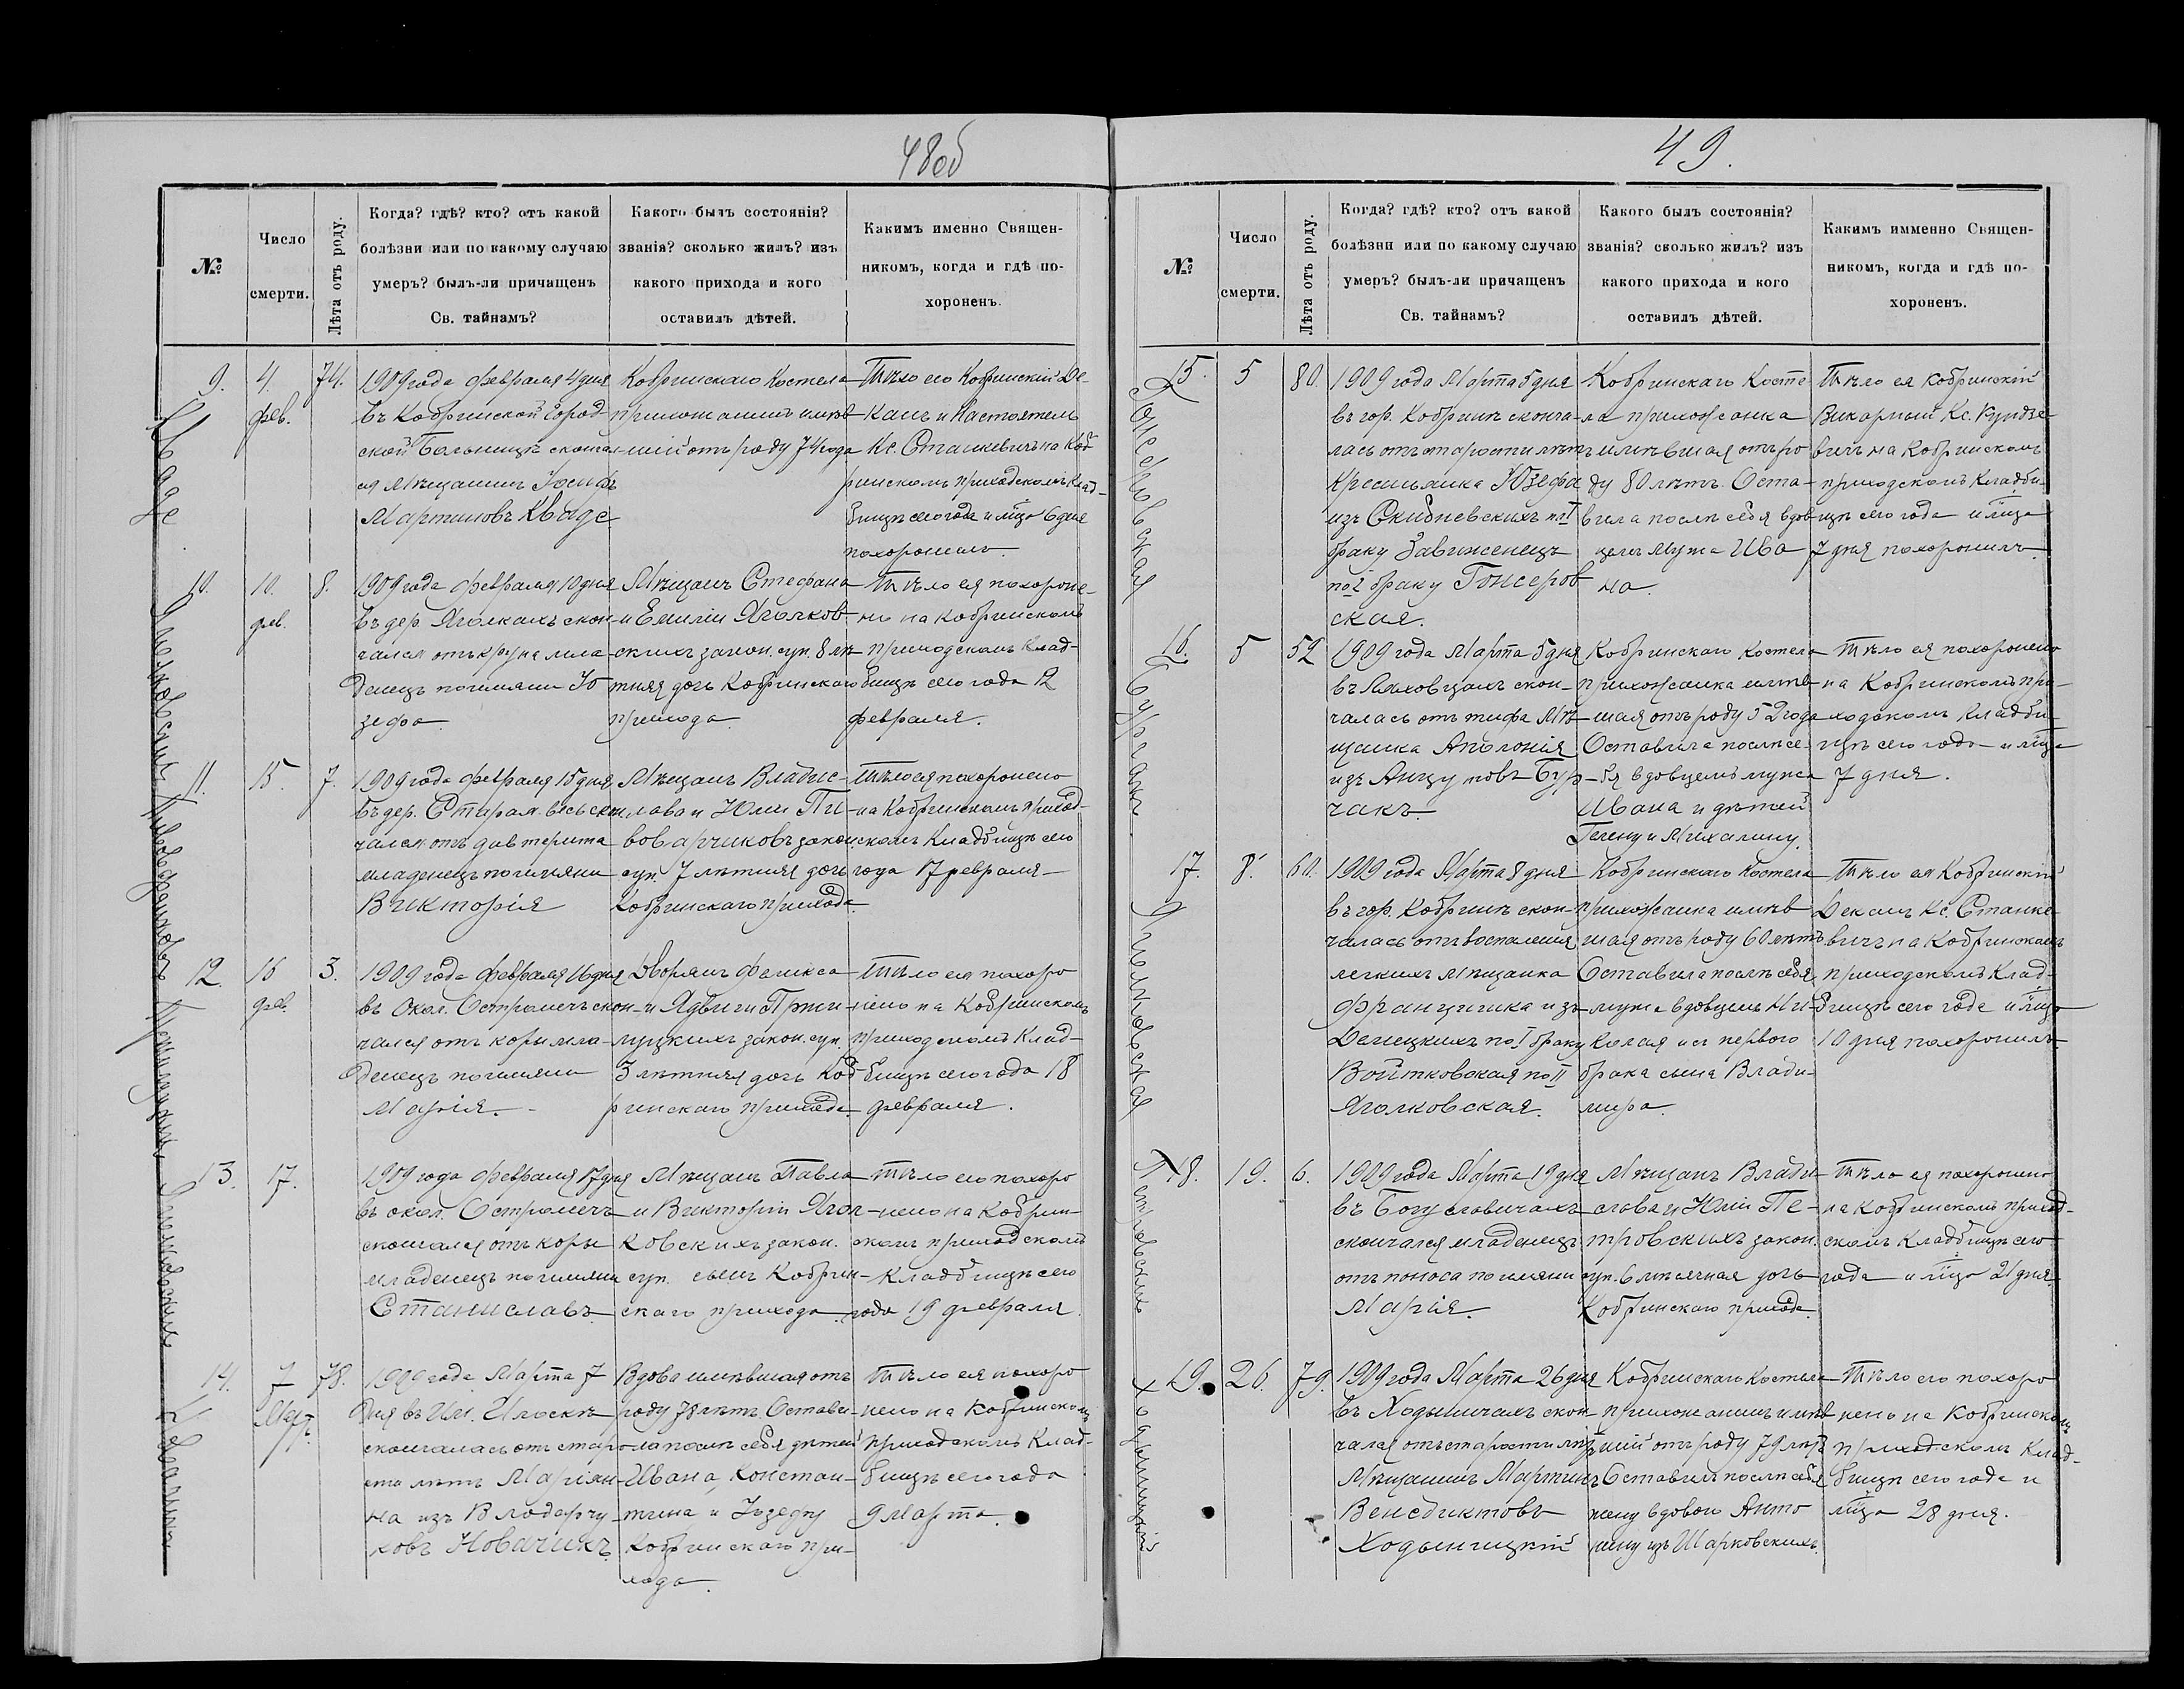 48об
№
Число
смерти.
Лѣта отъ роду.
Когда? гдѣ? кто? отъ какой
болѣзни или по какому случаю
умеръ? былъ-ли причащенъ
Св. тайнамъ?
Какого былъ состоянія?
званія? сколько жилъ? изъ
какого прихода и кого
оставилъ дѣтей.
Какимъ именно Священ-
никомъ, когда и гдѣ по-
хороненъ.
Кваде
9.
4.
фев.
74.
1909 года февраля 4 дня
въ Кобринской Город-
ской Больницѣ сконча-
ся мѣщанинъ Іосифъ
Мартиновъ Кваде
Кобринскаго Костела
прихожанинъ имѣв-
шій отъ роду 74 года
Тѣло его Кобринскій Де-
канъ и Настоятель
Кс. Станкевичъ на Коб-
ринскомъ приходскомъ Клад-
бищѣ сего года и мца 6 дня
похоронилъ.
Яголковскихъ
10.
10.
фев.
8.
1909 года февраля 10 дня
въ дер. Яголкахъ скон-
чался отъ крупа мла-
денецъ по имяни Ю-
зефа
Мѣщанъ Стефана
и Емиліи Яголков-
скихъ закон. суп. 8 лѣ-
тняя дочь Кобринскаго
прихода
Тѣло ея похороне-
но на Кобринскомъ
приходскомъ Клад-
бищѣ сего года 12
февраля.
11.
15.
7.
1909 года февраля 15 дня
въ дер. скон-
чался отъ дифтерита
младенецъ по имяни
Викторія
Мѣщанъ Владис-
лава и Юліи Пи-
воварчиковъ закон.
суп. 7 лѣтняя дочь
Кобринскаго прихода.
Тѣло ея похоронено
на Кобринскомъ приход-
скомъ Кладбищѣ сего
года 17 февраля
12.
16
фев.
3.
1909 года февраля 16 дня
въ окол. Остромечъ скон-
чался отъ кори мла-
денецъ по имяни
Марія.
Дворянъ Феликса
и Ядвиги Прши-
луцкихъ закон. суп.
3 лѣтняя дочь Коб-
ринскаго прихода
Тѣло ея похоро
нено на Кобринскомъ
приходскомъ Клад-
бищѣ сего года 18
февраля.
Яголковскихъ
13.
17.
1909 года февраля 17 дня
въ окол. Остромечъ
скончался отъ кори
младенецъ по имяни
Станиславъ.
Мѣщанъ Павла
и Викторіи Ягол-
ковскихъ закон.
суп. сынъ Кобрин-
скаго прихода
Тѣло его похоро
нено на Кобрин-
скомъ приходскомъ
Кладбищѣ сего
года 19 февраля.
14.
7
Март.
78.
1909 года Марта 7
дня въ им. Илоскѣ
скончалась отъ старо-
сти лѣтъ Маріан-
на изъ Влодарчу-
ковъ Новачикъ.
Вдова имѣвшая отъ
роду 78 лѣтъ. Остави-
ла послѣ себя дѣтей
Ивана, Констан-
тина и Юзефу
Кобринскаго при-
хода.
Тѣло ея похоро
нено на Кобринскомъ
приходскомъ Клад-
бищѣ сего года
9 Марта.
49.
№
Число
смерти.
Лѣта отъ роду.
Когда? гдѣ? кто? отъ какой
болѣзни или по какому случаю
умеръ? былъ-ли причащенъ
Св. тайнамъ?
Какого былъ состоянія?
званія? сколько жилъ? изъ
какого прихода и кого
оставилъ дѣтей.
Какимъ имменно Священ-
никомъ, когда и гдѣ по-
хороненъ.
Гонсеровская
15.
5
80.
1909 года Марта 5 дня
въ гор. Кобринѣ сконча-
лась отъ старости лѣтъ
Крестьянка Юзефа
изъ Скибневскихъ по I
браку Завиженецъ
по 2 браку Гонсеров
ская.
Кобринскаго Косте
ла прихожанка
имѣвшая отъ ро
ду 80 лѣтъ. Оста-
вила послѣ себя вдов-
цемъ мужа Ива
на.
Тѣло ея Кобринскій
Викарный Кс. Кундзе-
вичъ на Кобринскомъ
приходскомъ Кладби-
щѣ сего года и мца
7 дня похоронилъ
Бурчакъ
16.
5
52
1909 года Марта 5 дня
въ Ляховцахъ скон-
чалась отъ тифа Мѣ-
щанка Аполонія
изъ Бур-
чакъ
Кобринскаго Костела
прихожанка имѣв-
шая отъ роду 52 года
Оставила послѣ се-
бя вдовцемъ мужа
Ивана и дѣтей
Гелену и Михалину.
Тѣло ея похоронено
на Кобринскомъ при-
ходскомъ Кладби-
щѣ сего года и мца
7 дня.
Яголковская
17.
8.
60.
1909 года Марта 8 дня
въ гор. Кобринѣ скон-
чалась отъ воспаленія
легкихъ мѣщанка
Францишка изъ
Денецкихъ по I браку
Войтковская по II
Яголковская.
Кобринскаго Костела
прихожанка имѣв
шая отъ роду 60 лѣтъ
Оставила послѣ себя
мужа вдовцемъ Ни-
колая и съ первого
брака сына Влади-
мира.
Тѣло ея Кобринскій
Деканъ Кс. Станке-
вичъ на Кобринскомъ
приходскомъ Клад-
бищѣ сего года и мца
10 дня похоронилъ
Петровскихъ
18.
19.
6.
1909 года Марта 19 дня
въ Богуславичахъ
скончался младенецъ
отъ поноса по имяни
Марія.
Мѣщанъ Влади-
слава и Юліи Пе-
тровскихъ закон.
суп. 6 мѣсячная дочь
Кобринскаго прихода.
Тѣло ея похоронено
на Кобринскомъ приход-
скомъ Кладбищѣ сего
года и мца 21 дня.
Ходыницкій
19.
26.
79.
1909 года Марта 26 дня
въ Ходыничахъ скон-
чался отъ старости лѣтъ
Мѣщанинъ Мартинъ
Венедиктовъ
Ходыницкій
Кобринскаго Костела
прихожанинъ имѣв
шій отъ роду 79 лѣтъ
Оставилъ послѣ себя
жену вдовою Анто
нину изъ Шарковскихъ.
Тѣло его похоро
нено на Кобринскомъ
приходскомъ Клад-
бищѣ сего года и
мца 28 дня.